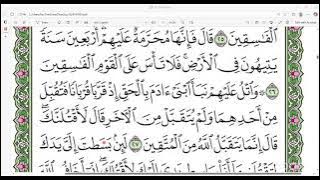 الْفَاسِقِينَ ﴿٢٥﴾ قَالَ فَإِنَّهَا مُحَرَّمَةٌ عَلَيْهِمْ أَرْبَعِينَ سَنَةً
يَتِيهُونَ فِي الْأَرْضِ فَلَا تَأْسَ عَلَى الْقَوْمِ الْفَاسِقِينَ
﴿٢٦﴾ وَاتْلُ عَلَيْهِمْ نَبَأَ ابْنَيْ ءَادَمَ بِالْحَقِّ إِذْ قَرَّبَا قُرْبَانًا فَتُقُبِّلَ
مِنْ أَحَدِهِمَا وَلَمْ يُتَقَبَّلْ مِنَ الْآخَرِ قَالَ لَأَقْتُلَنَّكَ
قَالَ إِنَّمَا يَتَقَبَّلُ اللَّهُ مِنَ الْمُتَّقِينَ ﴿٢٧﴾ لَئِنْ بَسَطْتَ إِلَيَّ يَدَكَ